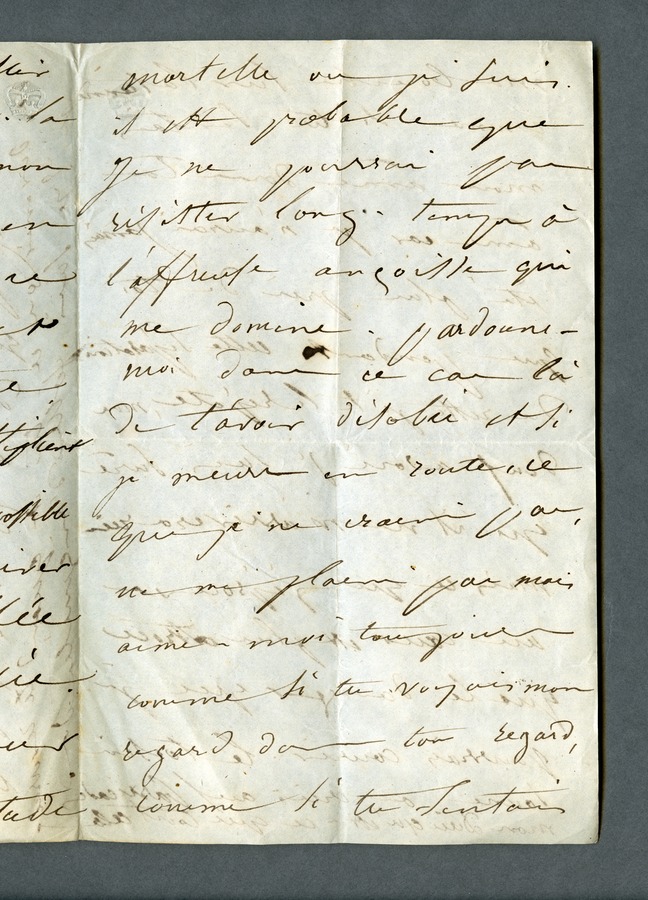 mortelle ou je suis.
il est probable que
je ne pourrai pas
résister long-temps à
l'affreuse angoisse qui
me domine. pardonne-
moi dans ce cas là
de t'avoir désobéi et si
je meurs en route, ce
que je ne crains pas,
ne me plains pas mais
aime-moi toujours
comme si tu voyais mon
regard dans ton regard,
comme si tu sentais
la
mon
en
re
te
possible
lée